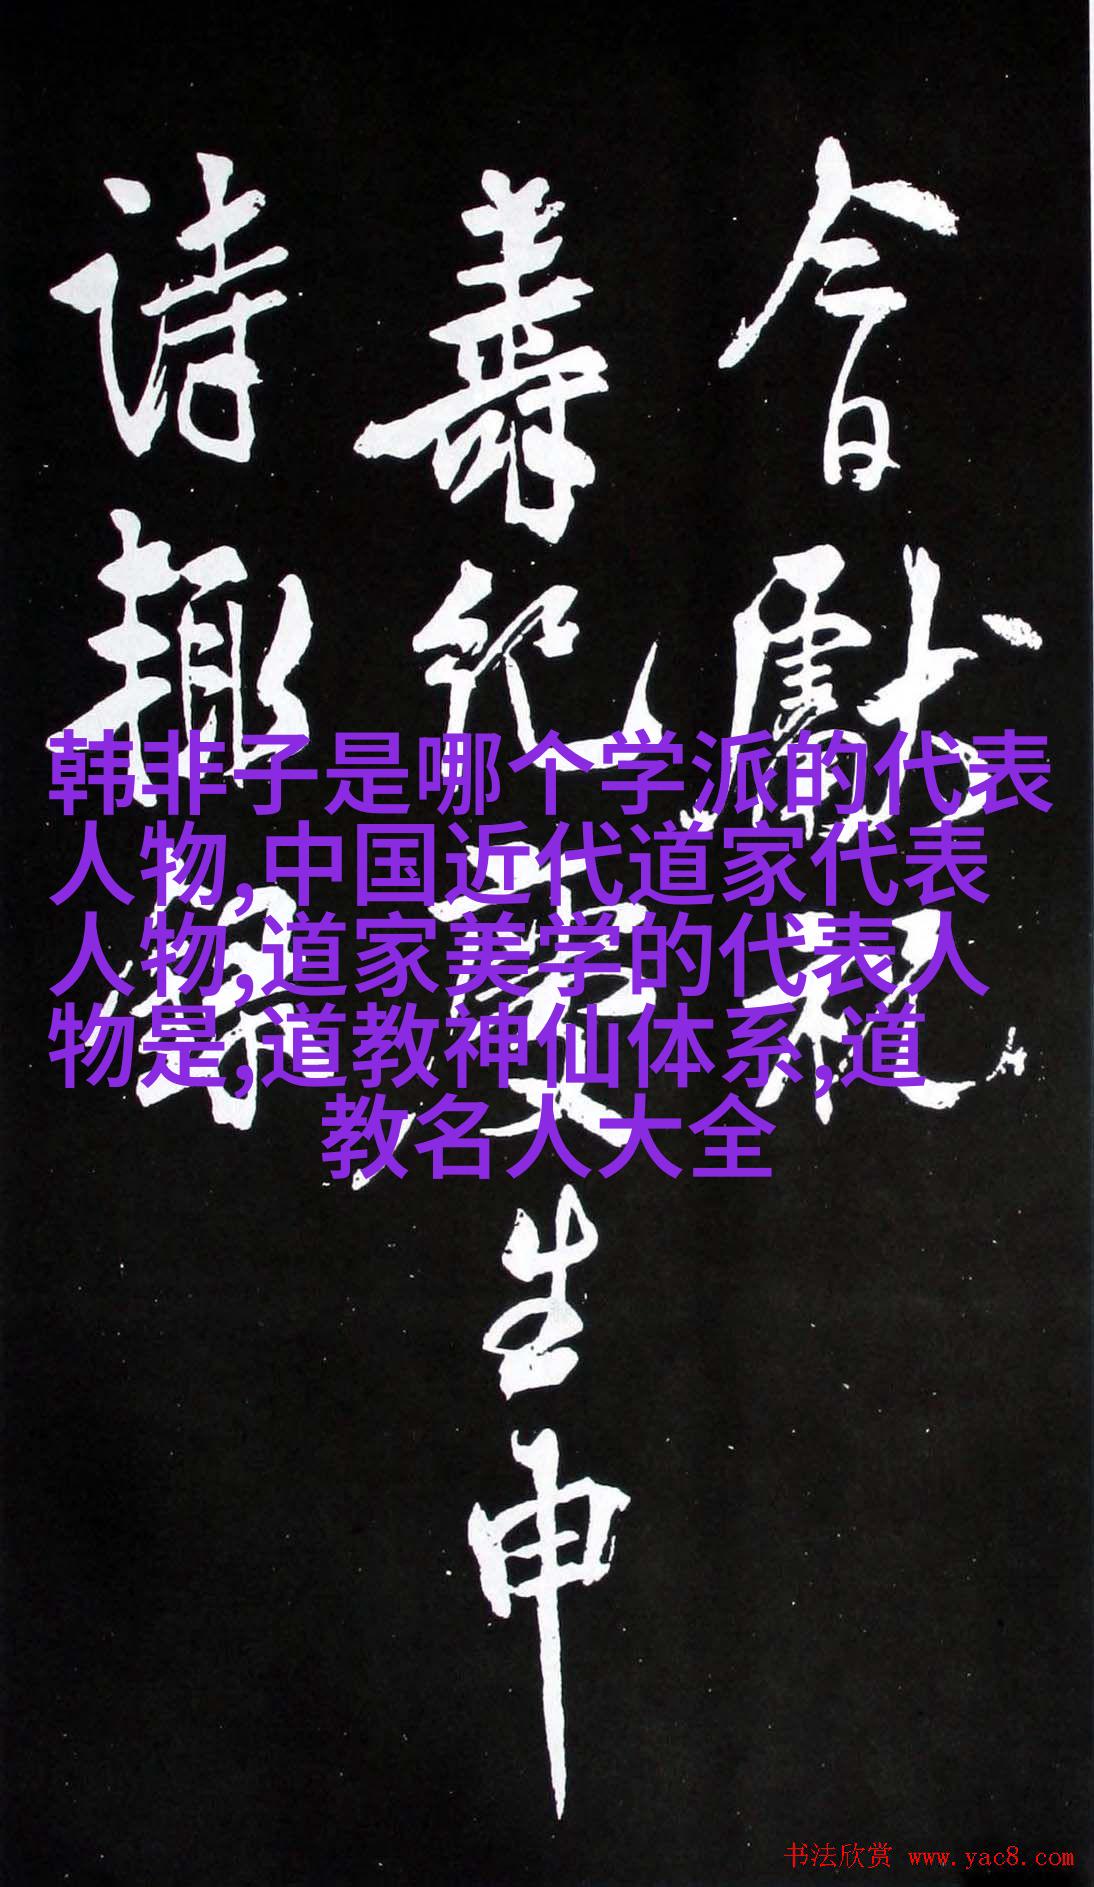 今日獻祝
壽紀生申
詩趣
韩非子是哪个学派的代表
人物,中国近代道家代表
人物,道家美学的代表人
物是,道教神仙体系,道
教名人大全
书法欣赏 www.yac8.com